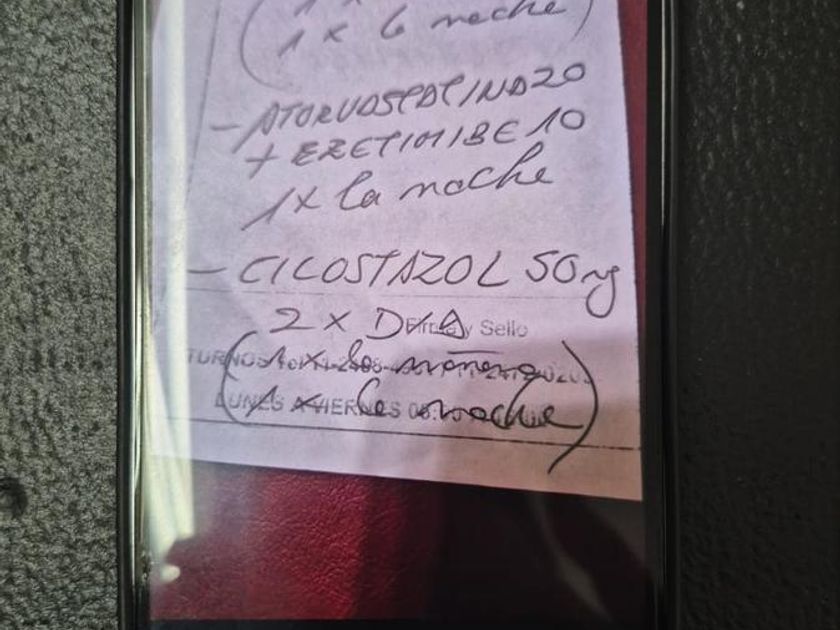 1 x
1 x la noche)
- ATORVASTATINA 20
+ EZETIMIBE 10
1 x la noche
- CILOSTAZOL 50 mg
2 x DIA
Firma y Sello
(1 x la manana
TURNOS
1 x la noche)
LUNES A VIERNES 08: